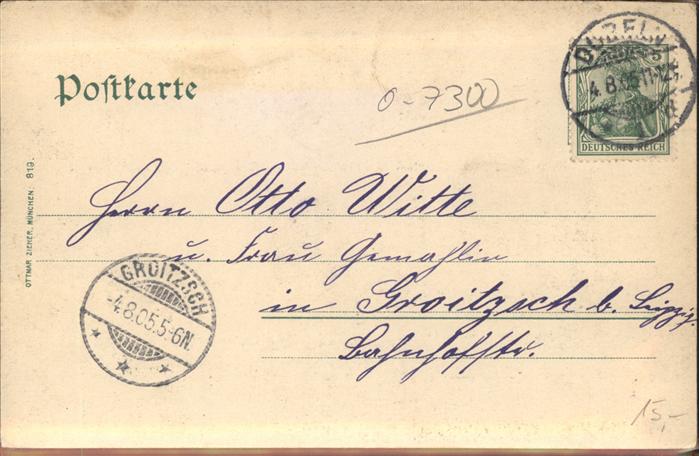 Postkarte
o-7300
DÖBELN
4.8.05.11-12V.
DEUTSCHES REICH
Herrn Otto Witte
u. Frau Gemahlin
in Groitzsch b. Leipzig
Bahnhofstr.
GROITZSCH
-4.8.05.5-6N.
OTTMAR ZIEHER, MÜNCHEN 819.
15,-